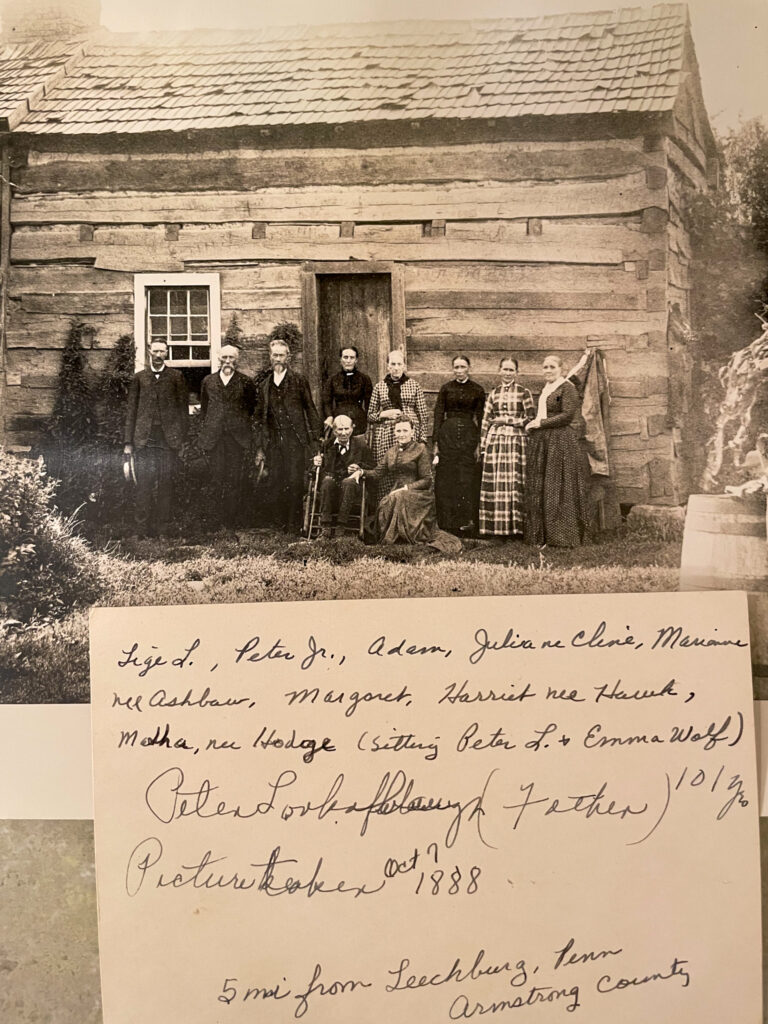 Lige L., Peter Jr., Adam, Julia ne Cline, Marianne
nee Ashbaw, Margaret, Harriet nee Hawk,
Motha, nee Hodge (Sitting Peter L. + Emma Wolf)
Peter (Father) 101 yrs
Picture taken Oct 7
1888
5 mi from Leechburg, Penn
Armstrong County